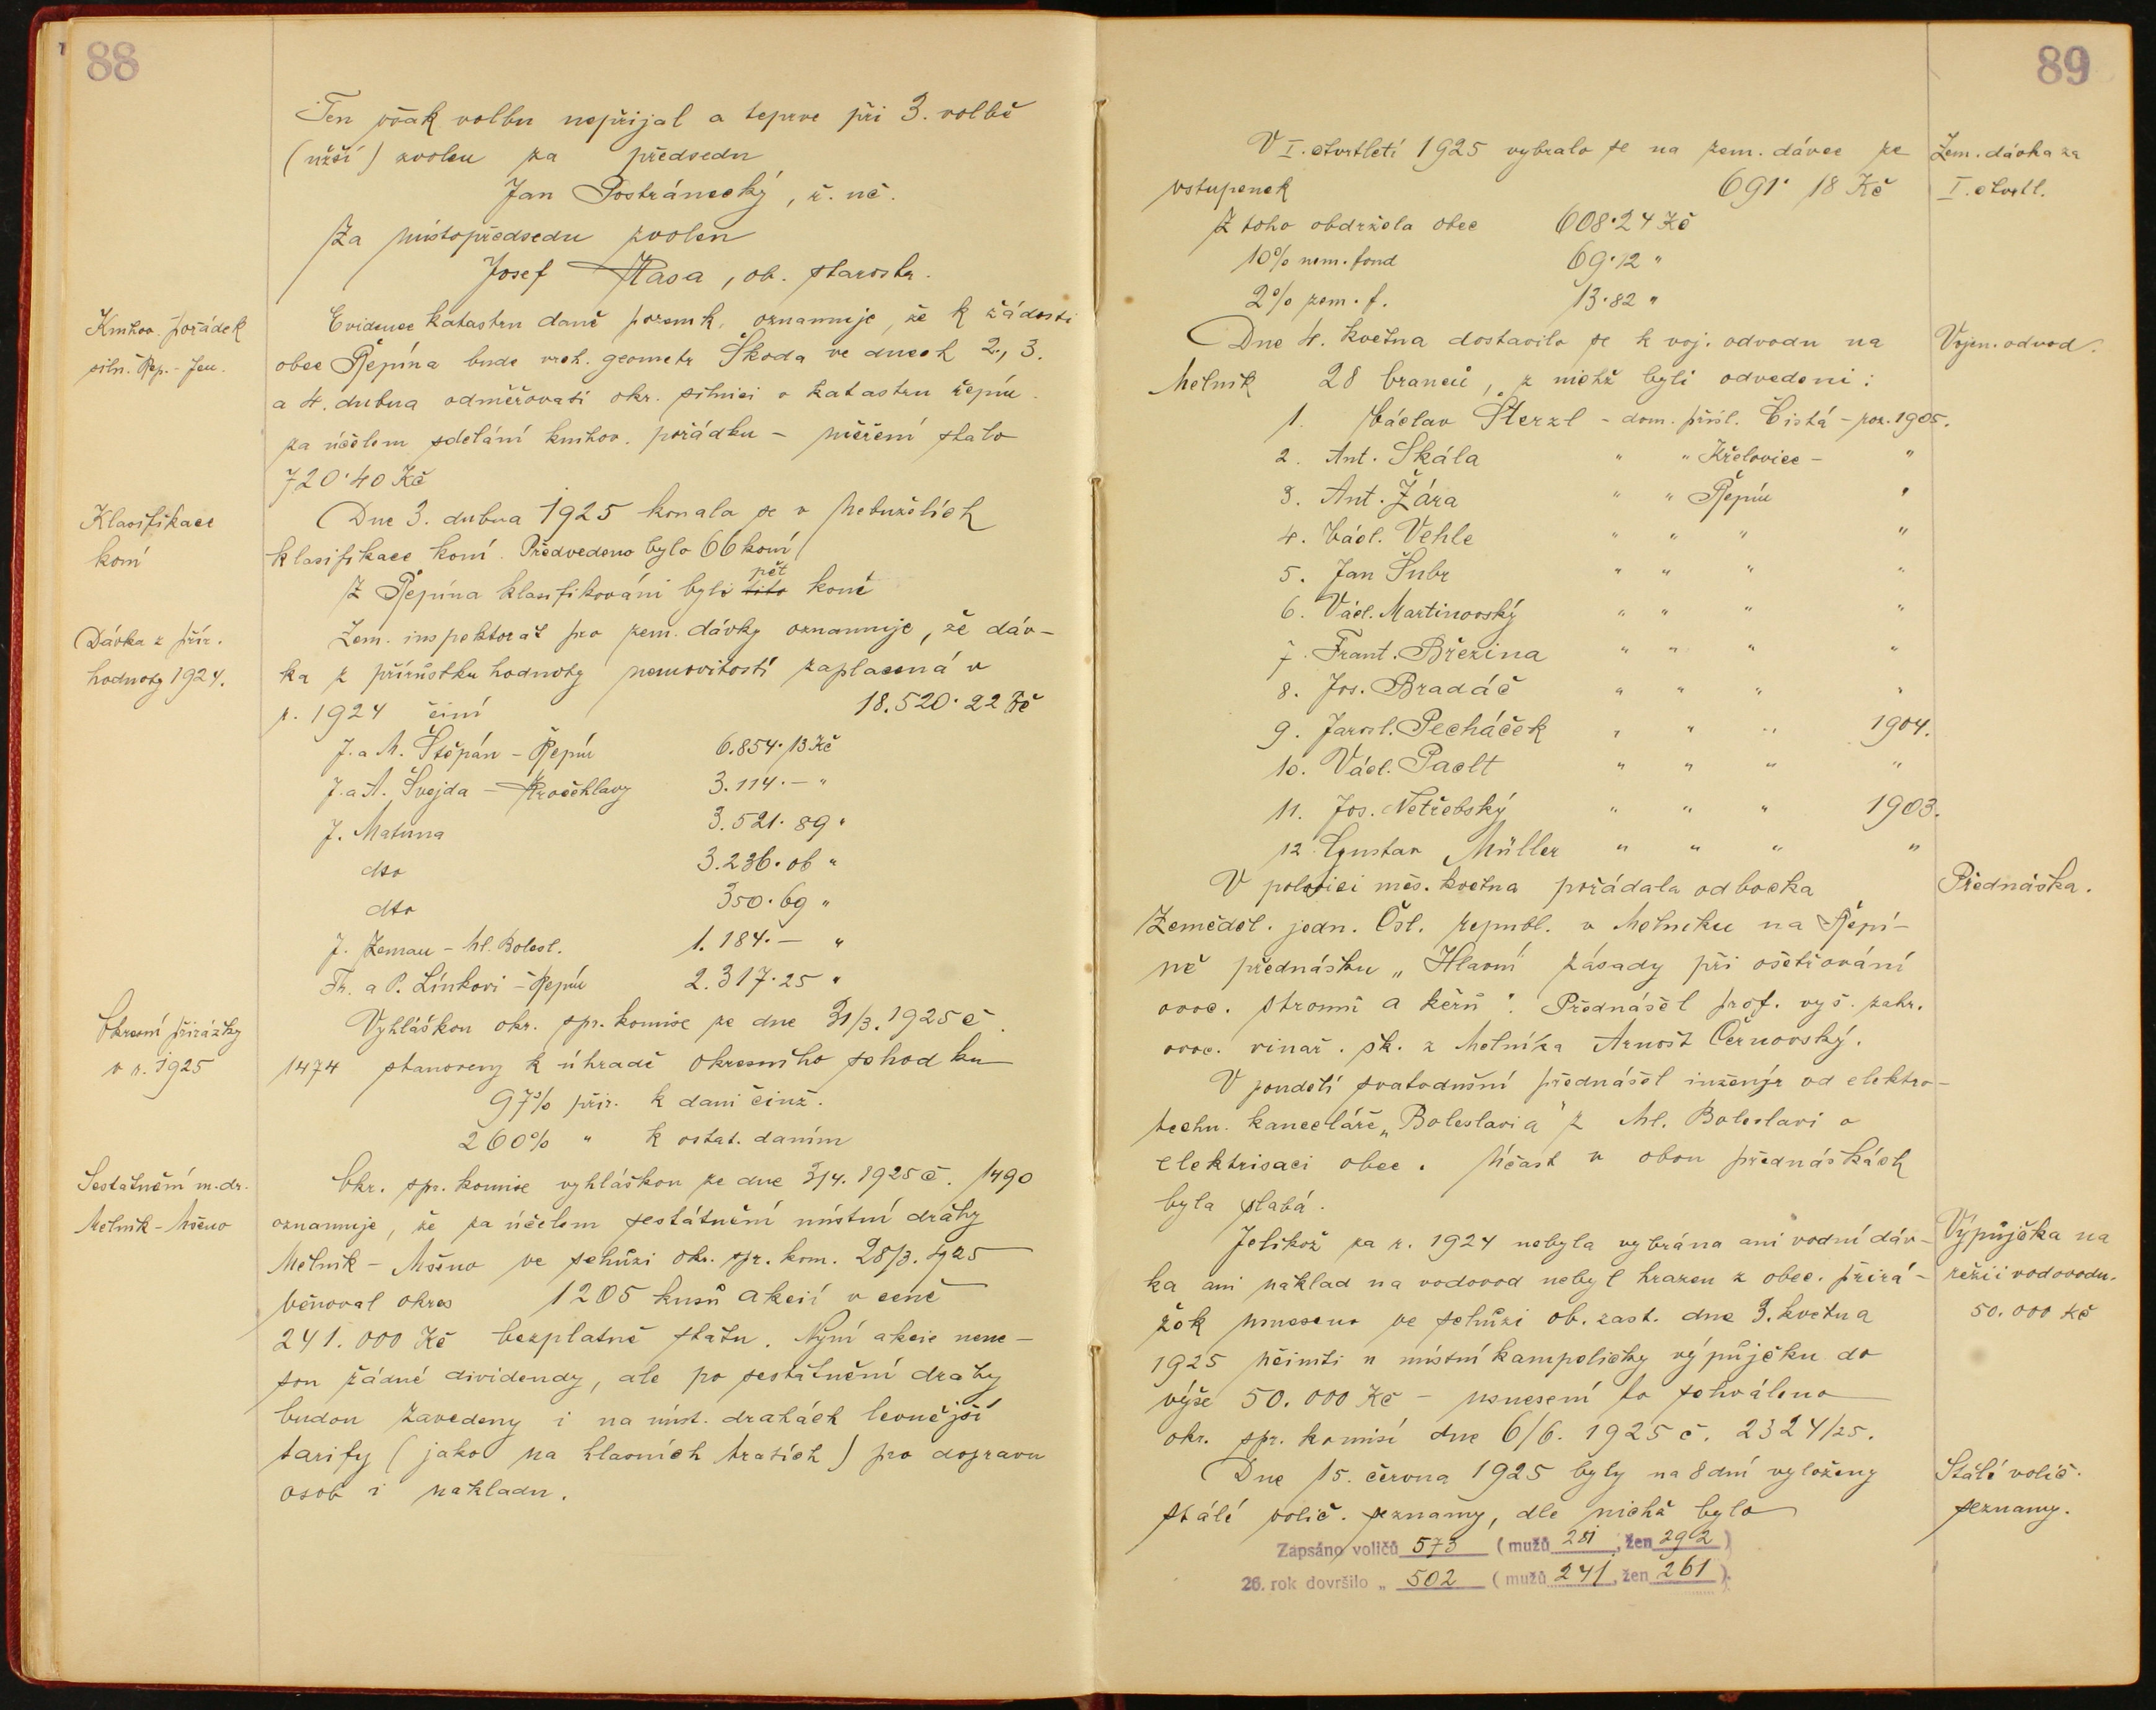 88
Ten však volbu nepřijal a teprve při 3. volbě
(užší) zvolen za předsedu
Jan Postránecký, ř. uč.
Za místopředsedu zvolen
Josef Kasa, ob. starosta.
Knihov. pořádek
siln. Řep. - Jen.
Evidence katastru daně pozemk. oznamuje, že k žádosti
obce Řepína bude vrch. geometr Škoda ve dnech 2., 3.
a 4. dubna odměřovati okr. silnici v katastru řepín.
za účelem sdělání knihov. pořádku - měření stálo
720·40 Kč
Klasifikace
koní
Dne 3. dubna 1925 konala se v Nebuželích
klasifikace koní. Předvedeno bylo 66 koní
Z Řepína klasifikováni byli tito pět koně
Dávka z přír.
hodnoty 1924.
Zem. inspektorát pro zem. dávky oznamuje, že dáv-
ka z přírůstku hodnoty nemovitostí zaplacená v
r. 1924 činí 18.520·22 Kč
J. a M. Štěpán - Řepín 6.854·13 Kč
J. a A. Švejda - Kročehlavy 3.114·- "
J. Matuna 3.521·89 "
dto 3.236·06 "
dto 350·69 "
J. Zeman - Ml. Bolesl. 1.184·- "
Fr. a P. Línkovi - Řepín 2.317·25 "
Okresní přirážky
v r. 1925
Vyhláškou okr. spr. komise ze dne 31/3. 1925 č.
1474 stanoveny k úhradě okresního schodku
97% přir. k dani činž.
260% " k ostat. daním
Sestátnění m. dr.
Mělník - Mšeno
Okr. spr. komise vyhláškou ze dne 3/4. 1925 č. 1490
oznamuje, že za účelem sestátnění místní dráhy
Mělník - Mšeno ve schůzi okr. spr. kom. 28/3. 1925
věnoval okres 1205 kusů akcií v ceně
241.000 Kč bezplatně státu. Nyní akcie nene-
sou žádné dividendy, ale po sestátnění dráhy
budou zavedeny i na míst. drahách levnější
tarify (jako na hlavních tratích) pro dopravu
osob i nákladu.
89
V I. čtvrtletí 1925 vybralo se na zem. dávce ze
vstupenek 691·18 Kč
Zem. dávka za
I. čtvrtl.
Z toho obdržela obec 608·24 Kč
10% nem. fond 69·12 "
2% zem. f. 13·82 "
Dne 4. května dostavilo se k voj. odvodu na
Mělník 28 branců, z nichž byli odvedeni:
Vojen. odvod.
1. Václav Šterzl - dom. přísl. Čistá - roz. 1905.
2. Ant. Skála " " Křelovice - "
3. Ant. Žára " " Řepín "
4. Václ. Vehle " " " "
5. Jan Šubr " " " "
6. Václ. Martinovský " " " "
7. Frant. Březina " " " "
8. Jos. Bradáč " " " "
9. Jarosl. Pecháček " " " 1904.
10. Václ. Paclt " " " "
11. Jos. Netřebský " " " 1903.
12 Gustav Müller " " " "
V polovici měs. května pořádala odbočka
Přednáška.
Zeměděl. jedn. Čsl. republ. v Mělníku na Řepí-
ně přednášku „Hlavní zásady při ošetřování
ovoc. stromů a keřů". Přednášel prof. vyš. zahr.
ovoc. vinař. šk. z Mělníka Arnošt Černovský.
V pondělí svatodušní přednášel inženýr od elektro-
techn. kanceláře „Boleslavia" z Ml. Boleslavi o
elektrisaci obce. Účast v obou přednáškách
byla slabá.
Jelikož za r. 1924 nebyla vybrána ani vodní dáv-
ka ani náklad na vodovod nebyl hrazen z obec. přirá-
žek usneseno ve schůzi ob. zast. dne 3. května
1925 učiniti u místní kampeličky výpůjčku do
výše 50.000 Kč - usnesení to schváleno
okr. spr. komisí dne 6/6. 1925 č. 2324/25.
Výpůjčka na
režii vodovodu.
50.000 Kč
Dne 15. června 1925 byly na 8 dní vyloženy
stálé volič. seznamy, dle nichž bylo
Stálé volič.
seznamy.
Zapsáno voličů 573 (mužů 281, žen 292)
26. rok dovršilo „ 502 (mužů 241, žen 261).